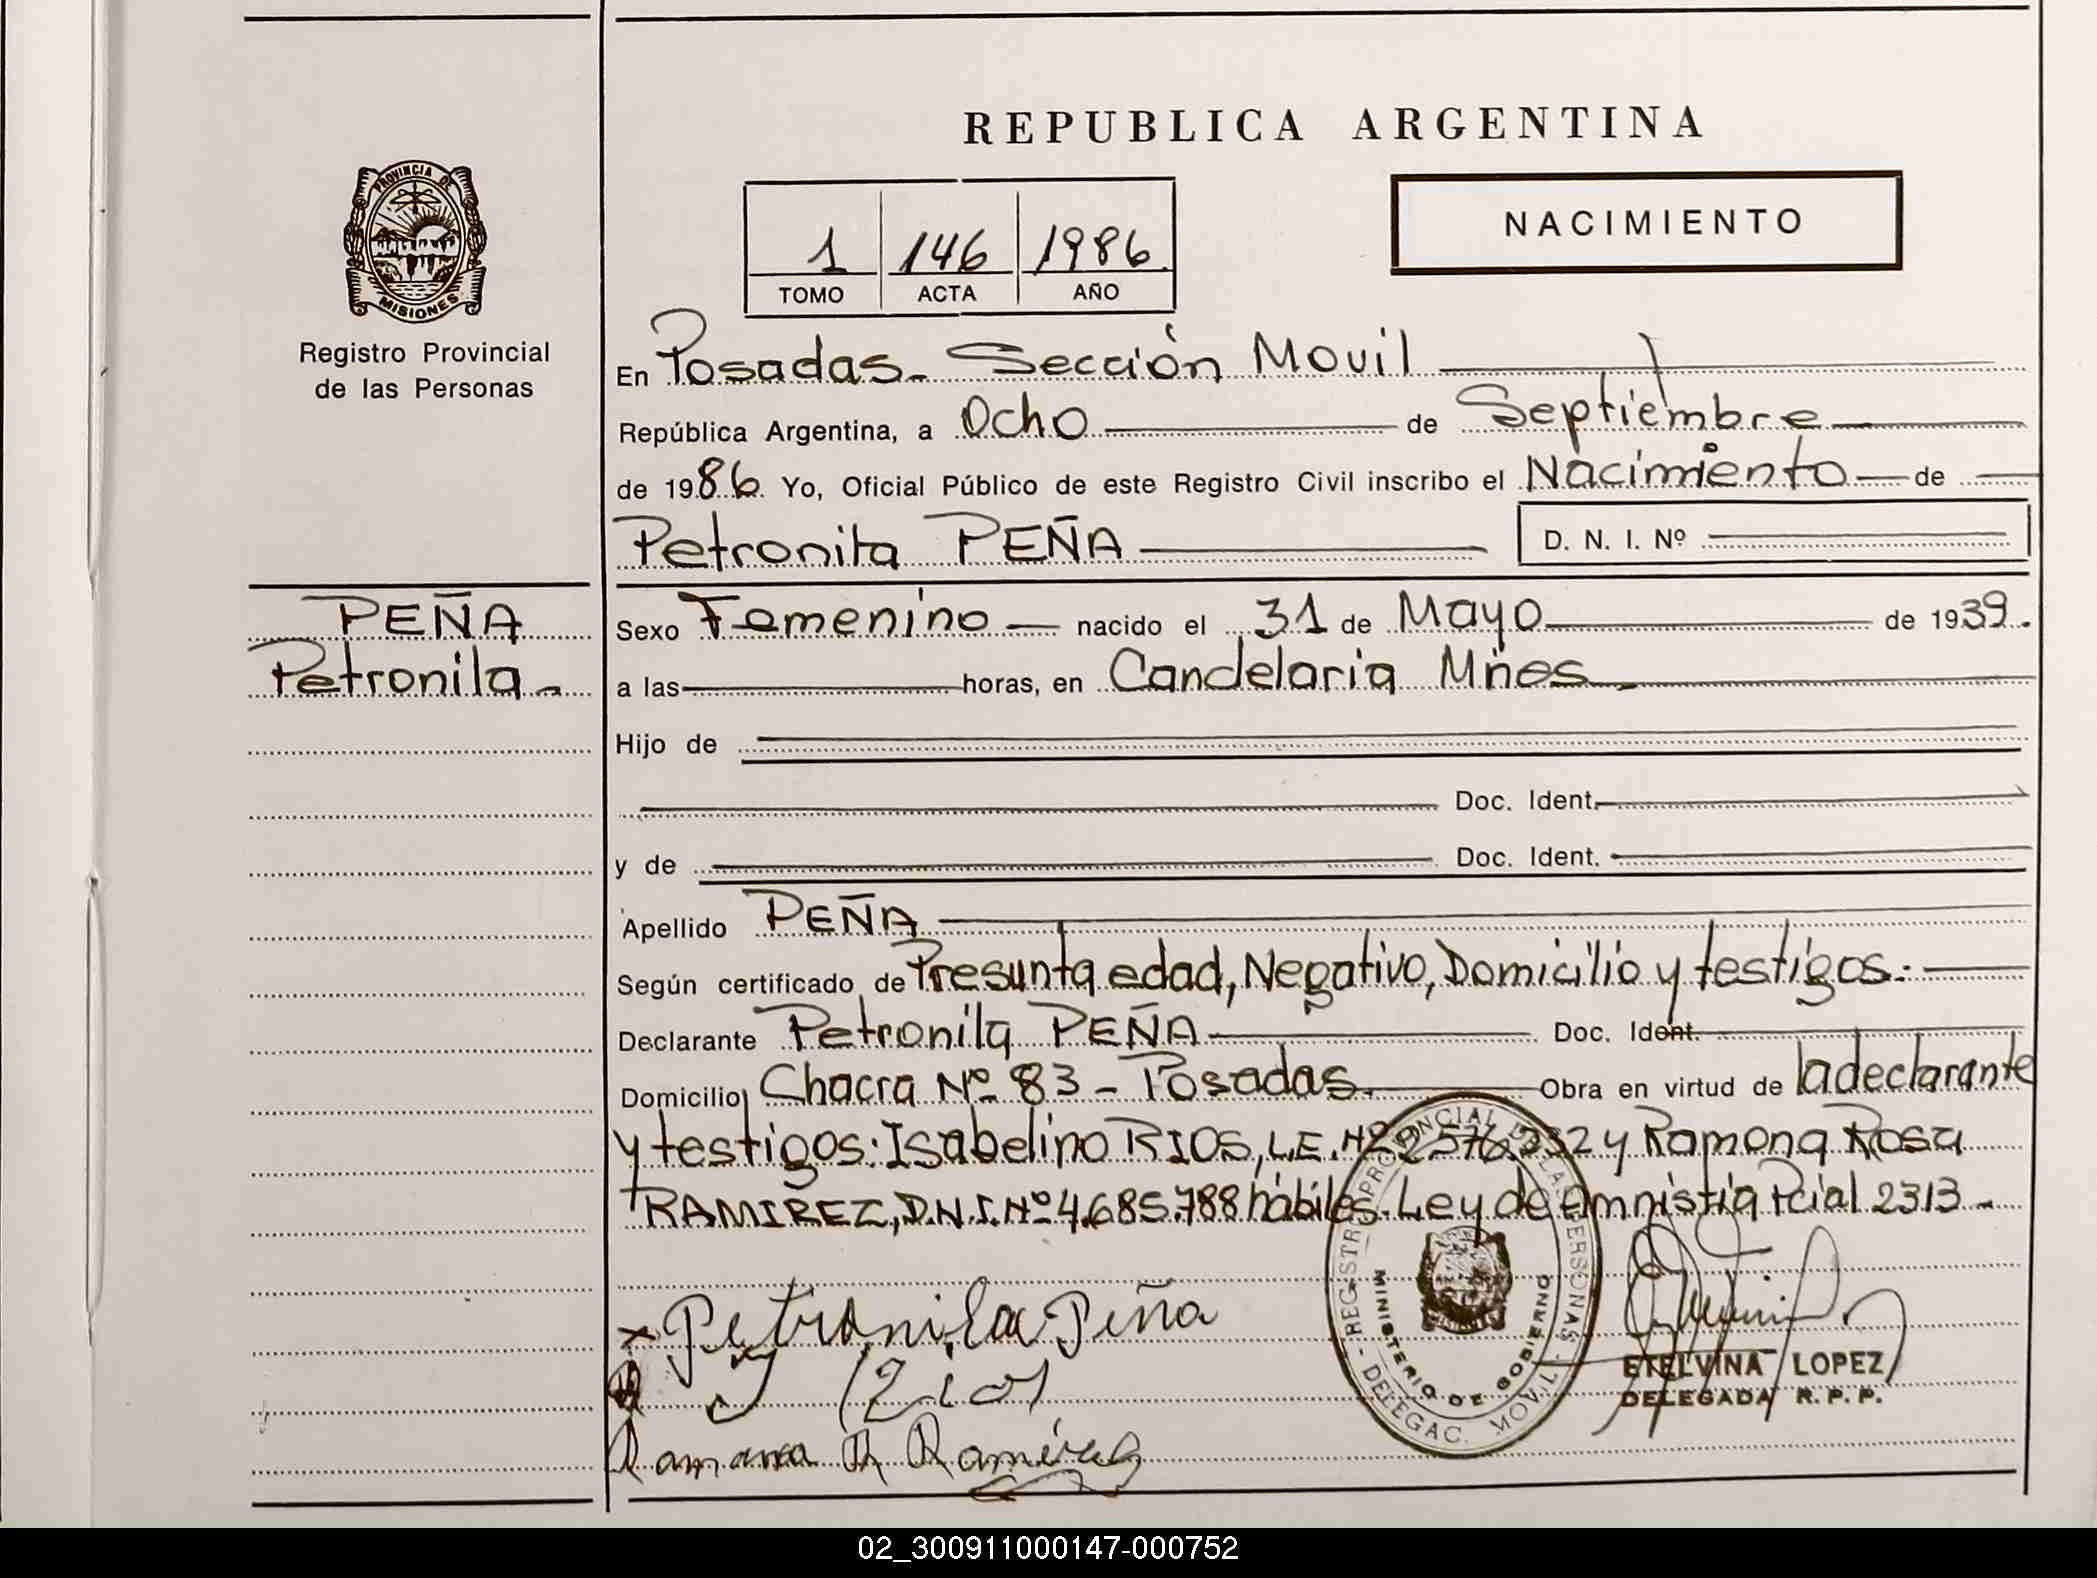 REPUBLICA ARGENTINA
NACIMIENTO
1 146 1986
TOMO ACTA AÑO
PROVINCIA DE
MISIONES
Registro Provincial
de las Personas
En Posadas- Sección Movil
República Argentina, a Ocho de Septiembre
de 1986. Yo, Oficial Público de este Registro Civil inscribo el Nacimiento de
Petronita PEÑA D. N. I. Nº
PEÑA
Petronila-
Sexo Femenino nacido el 31 de Mayo de 1939.
a las horas, en Candelaria Mnes
Hijo de
Doc. Ident.
y de Doc. Ident.
Apellido PEÑA
Según certificado de Presunta edad, Negativo, Domicilio y testigos.-
Declarante Petronila PEÑA Doc. Ident.
Domicilio Chacra Nº 83 - Posadas. Obra en virtud de la declarante
y testigos: Isabelino RIOS, L.E. Nº y Ramona Rosa
RAMIREZ, D.N.I. Nº 4.685.788 hábiles. Ley de Amnistía Pcial 2313 -
REGISTRO PROVINCIAL DE LAS PERSONAS - DELEGAC. MOVIL -
MINISTERIO DE GOBIERNO
x Petronila Peña
Y Rios
Ramona R Ramírez
ETELVINA LOPEZ
DELEGADA R. P. P.
02_300911000147-000752